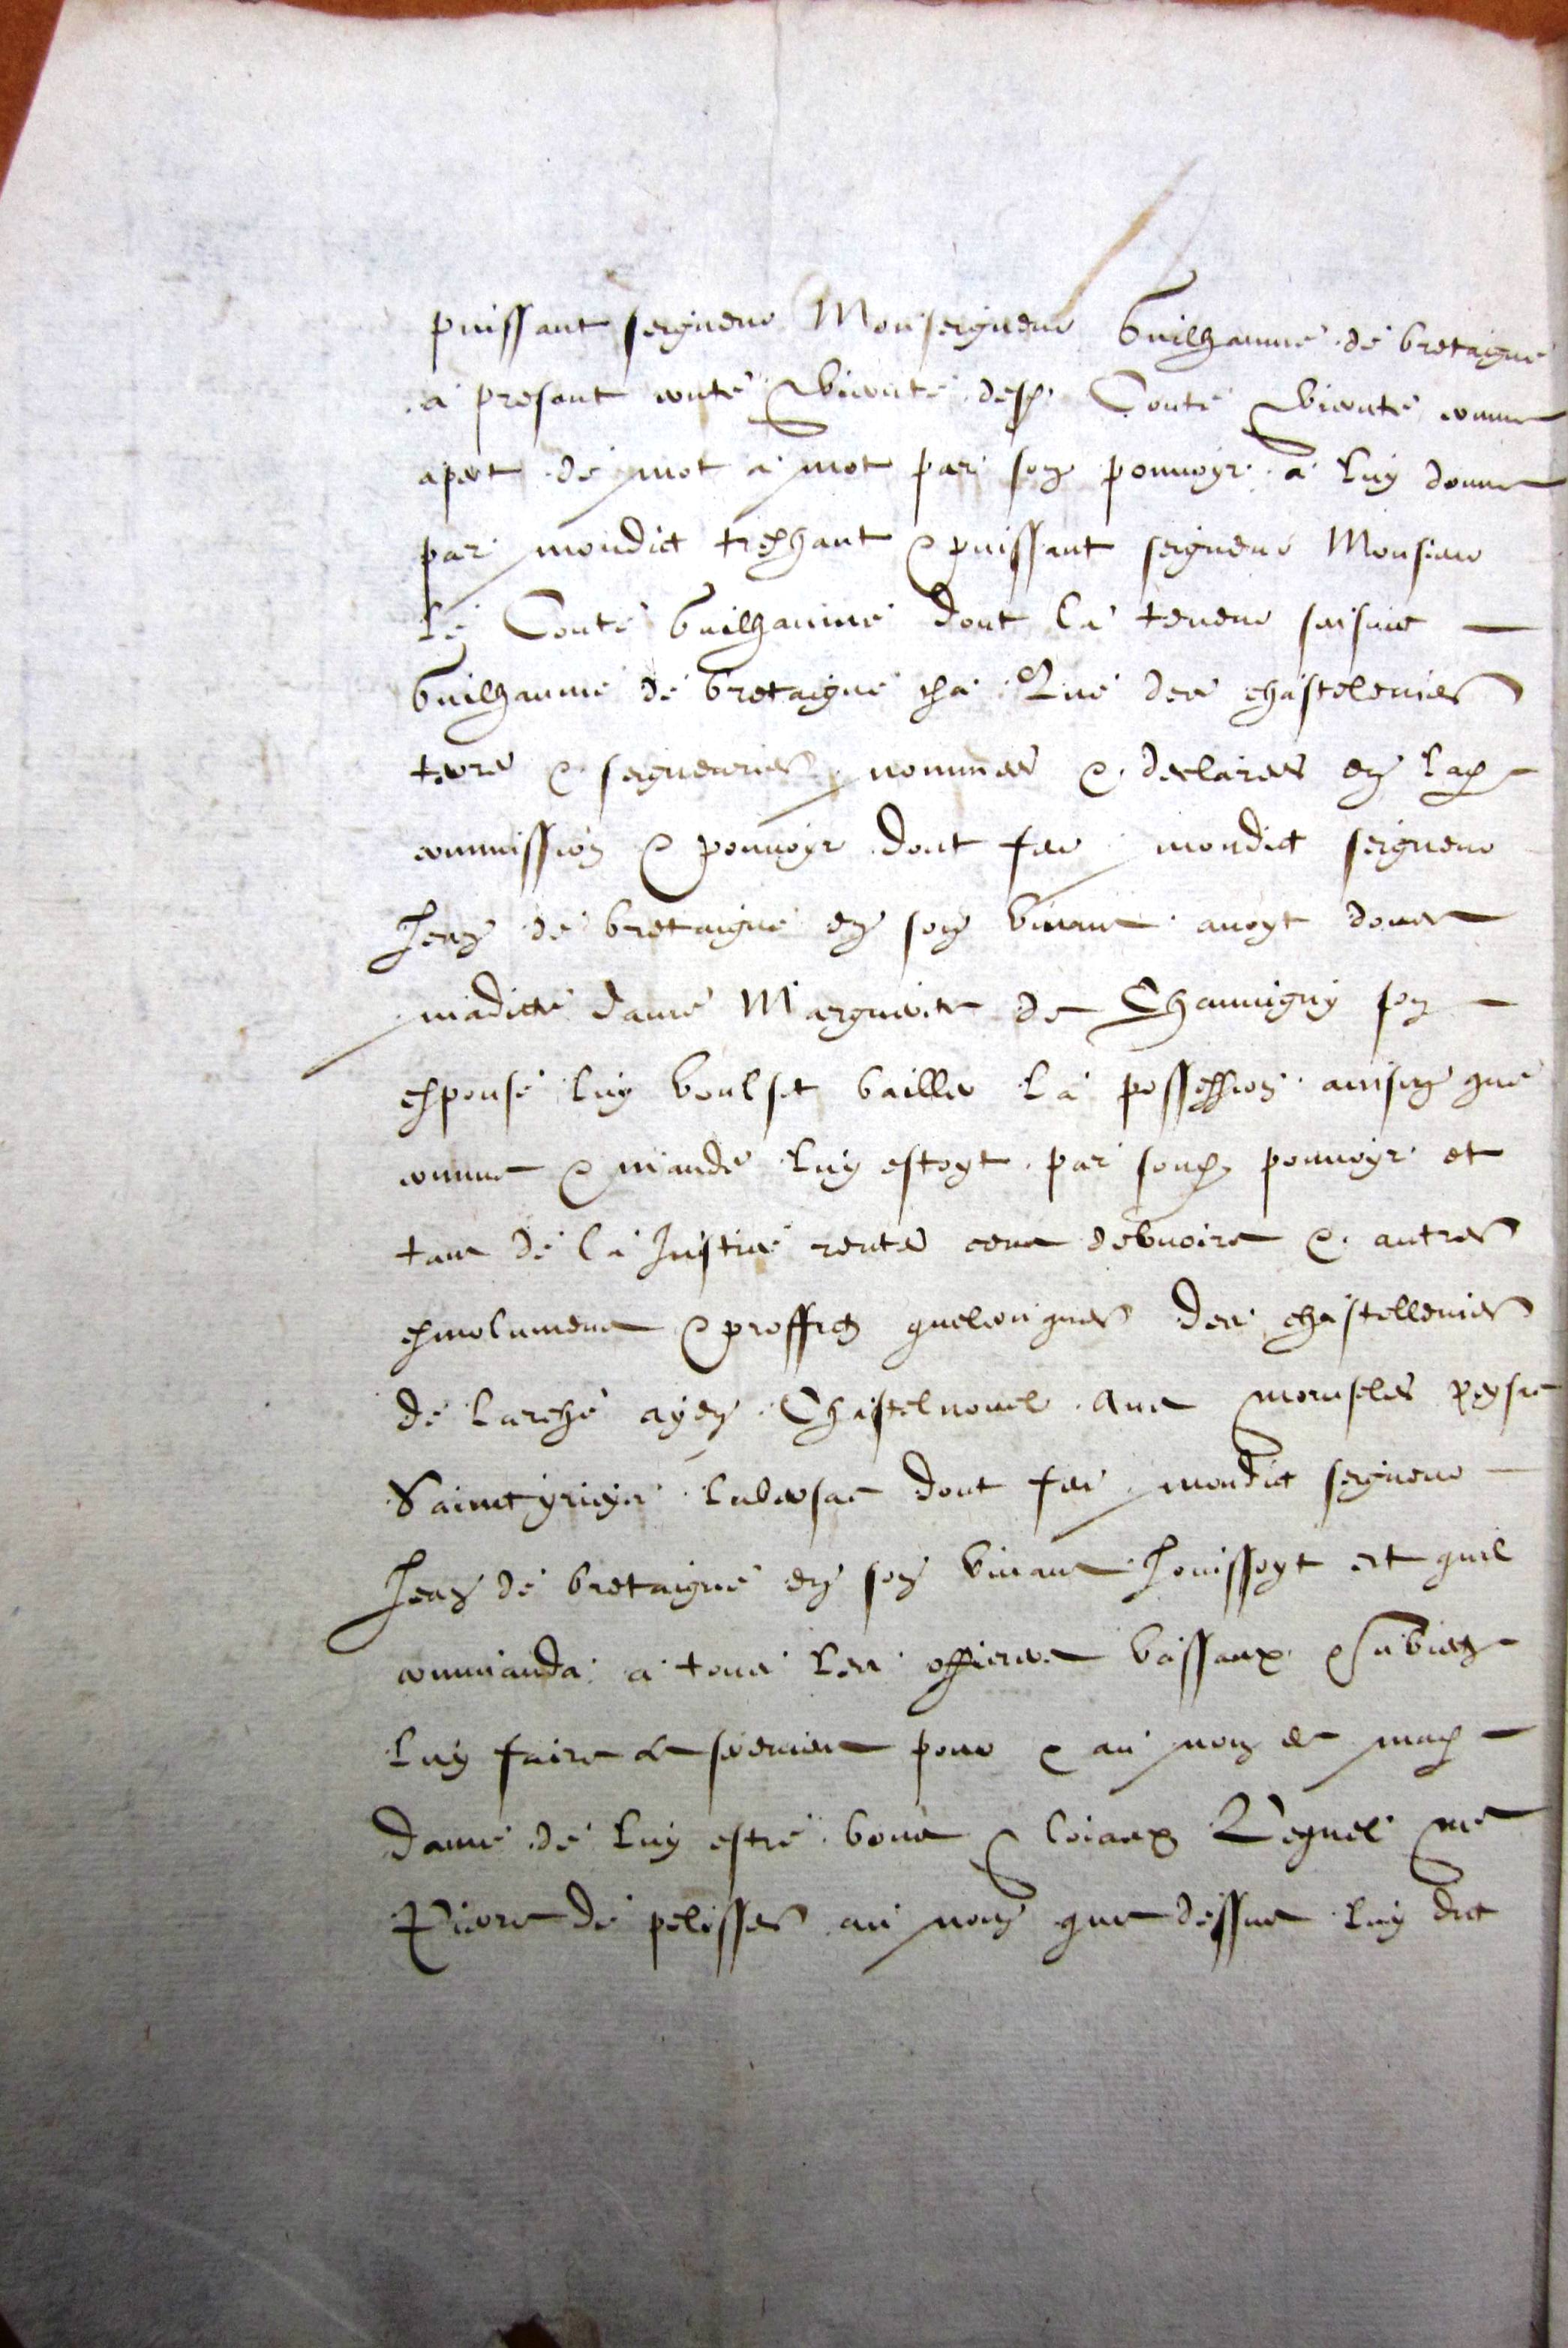 puissant seigneur Monseigneur Guilhaume de bretaigne
a present conte & viconte desd. Conte & viconte comme
apert de mot a mot par son pouvoyr a luy donne
par mondict treshaut & puissant seigneur Monsieur
le Conte Guilhaume dont la teneur sensuict
Guilhaume de bretaigne &a Que des chastelenies
terres & seigneuries nommees & declarees en lad.
commission & pouvoyr dont feu mondict seigneur
Jean de bretaigne en son vivant avoyt doue
madicte dame Marguerite de Chauvigny son
espouse luy voulset bailler la possession ainsin que
comme & mande luy estoyt par sond. pouvoyr et
tant de la Justice rentes cens debvoirs & autres
esmolumens & proffitz quelconques des chastellenies
de Larche ayen Chastelnouel Ans peysac
Sainct yrieys Lubersac dont feu mondict seigneur
Jean de bretaigne en son vivant Jouissoyt et quil
commanda a tous les officiers vassaux & subietz
luy faire le serment pour & au nom de mad.
dame de luy estre bons & loiaux Lequel me
Pierre de pelisses au nom que dessus luy dict